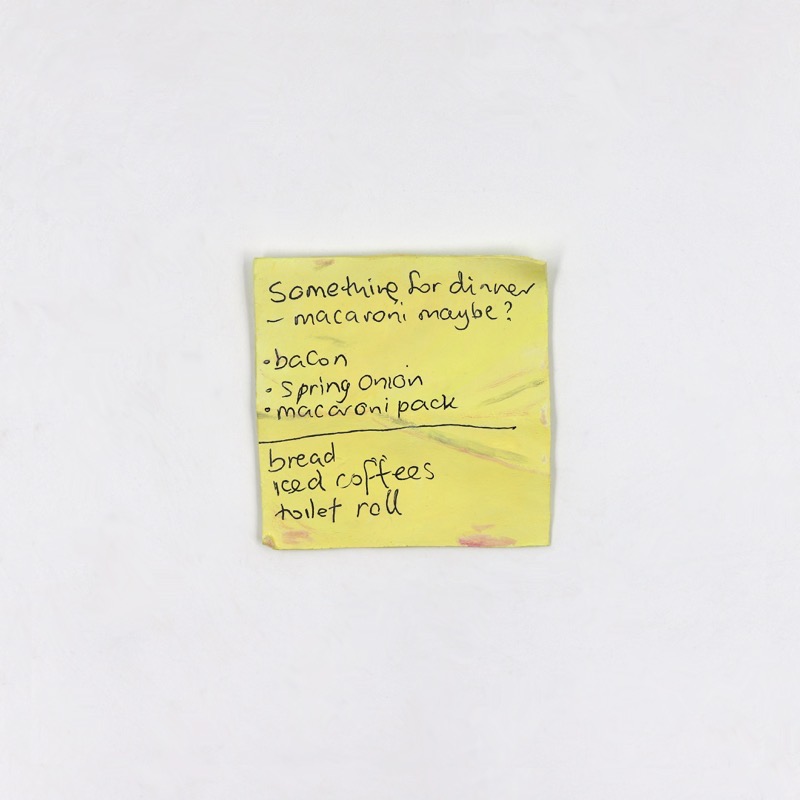 Something for dinner
- macaroni maybe?
• bacon
• spring onion
• macaroni pack
bread
iced coffees
toilet roll